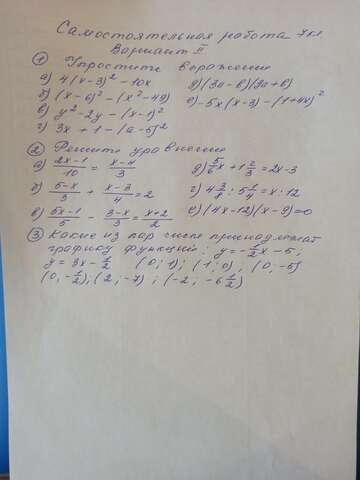 Самостоятельная работа 7 кл
Вариант II
① Упростите выражение
а) 4(x-3)² - 10x д) (3a-b)(3a+b)
б) (x-6)² - (x²-49) е) -5x(x-3) - (1+4x)²
в) y² - 2y - (x-1)²
г) 3x + 1 - (a-5)²
② Решите уравнение
а) (2x-1)/10 = (x-4)/3 д) 5/6 x + 1 2/3 = 2x-3
б) (5-x)/3 + (x-3)/4 = 2 г) 4 3/8 : 5 1/4 = x · 12
в) (5x-1)/5 - (3-x)/3 = (x+2)/2 е) (4x-12)(x-9)=0
③ Какие из пар чисел принадлежат
графику функций: y = -1/2 x - 5;
y = 3x - 1/2 (0; 1); (1; 0), (0; -5)
(0; -1/2); (2; -7); (-2; -6 1/2)